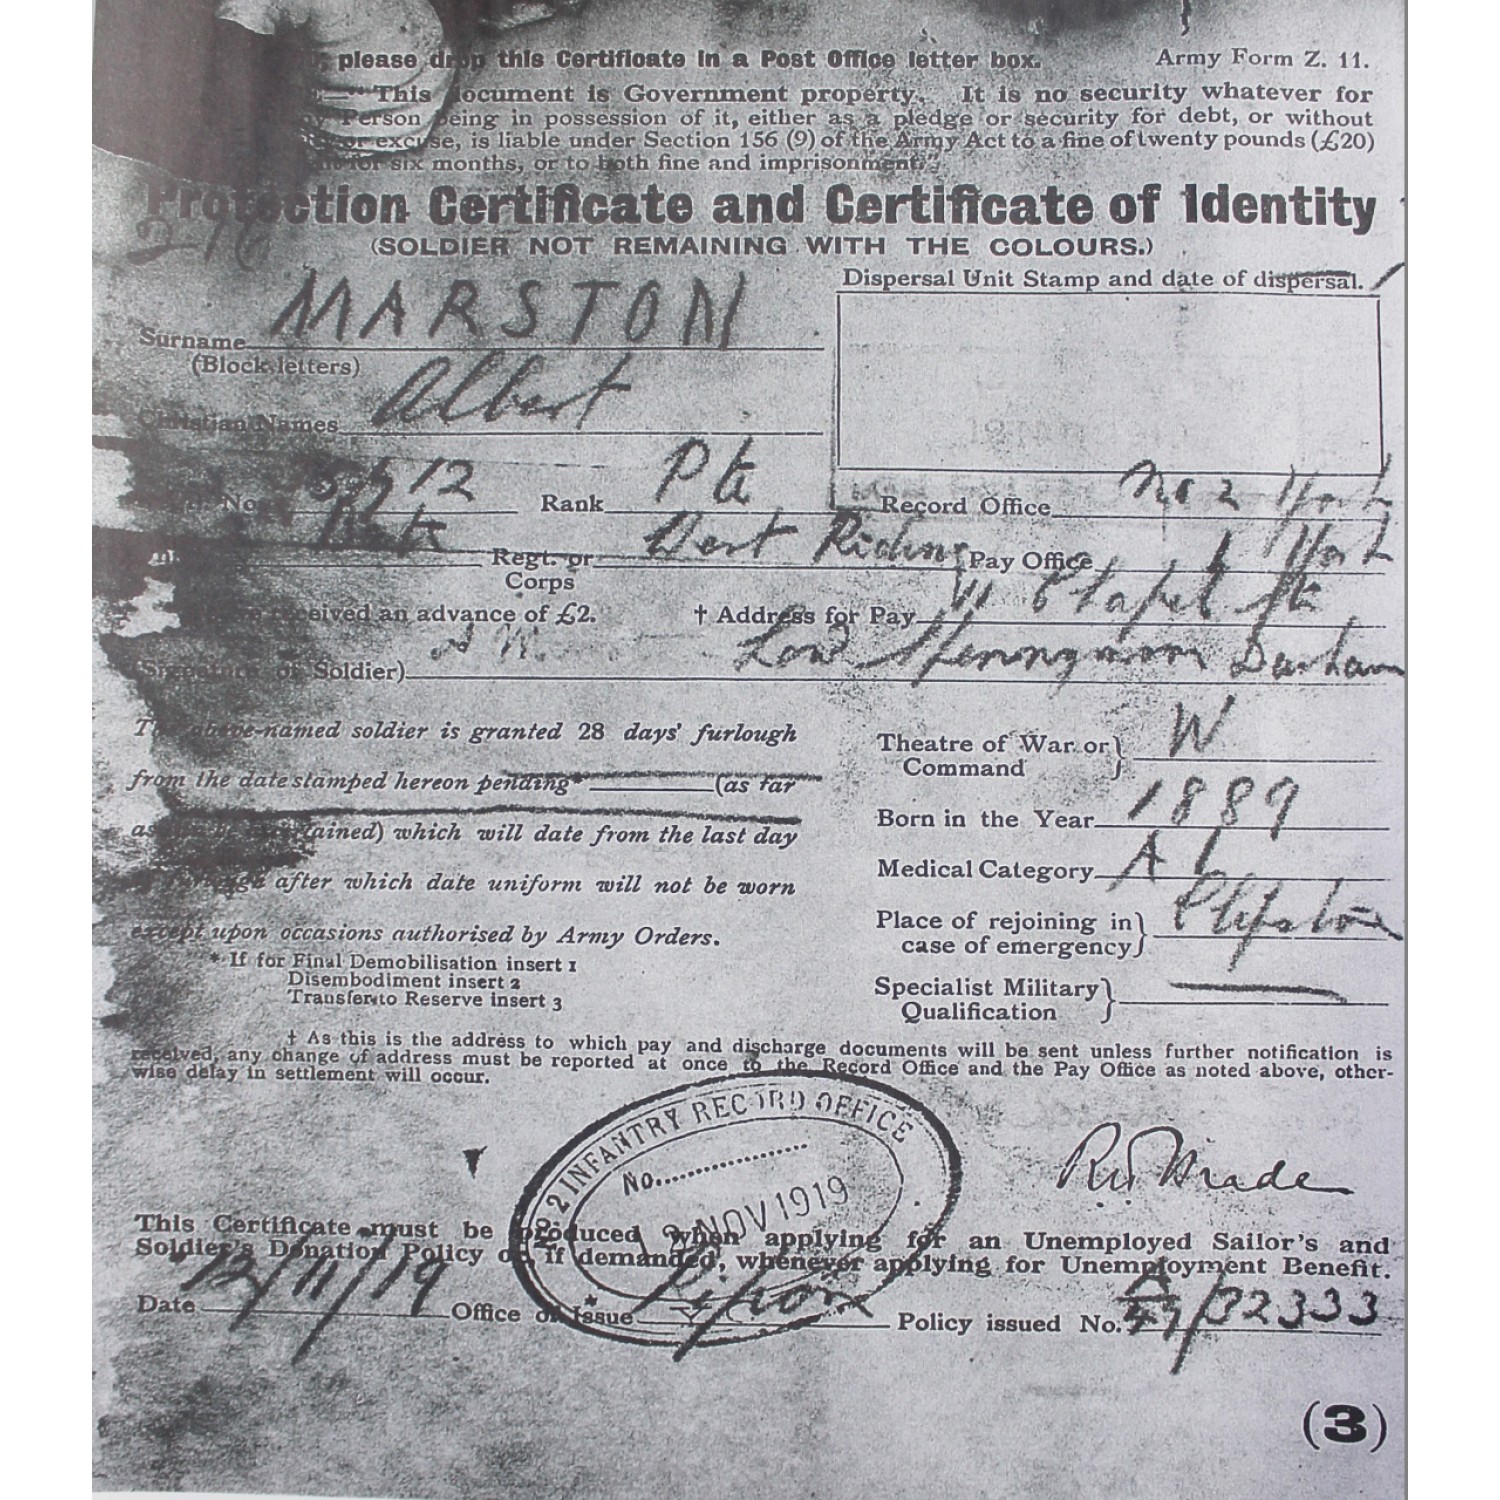 please drop this Certificate in a Post Office letter box. Army Form Z. 11.
"This document is Government property. It is no security whatever for
Person being in possession of it, either as a pledge or security for debt, or without
or excuse, is liable under Section 156 (9) of the Army Act to a fine of twenty pounds (£20)
for six months, or to both fine and imprisonment."
Protection Certificate and Certificate of Identity
(SOLDIER NOT REMAINING WITH THE COLOURS.)
Dispersal Unit Stamp and date of dispersal.
Surname MARSTON
(Block letters)
Christian Names Albert
No. 12 Rank Pte Record Office No 2 York
Regt. or Corps West Riding Pay Office York
received an advance of £2. † Address for Pay Chapel St
(Signature of Soldier) Low Spennymoor Durham
The above-named soldier is granted 28 days' furlough
from the date stamped hereon pending* (as far
as can be ascertained) which will date from the last day
after which date uniform will not be worn
except upon occasions authorised by Army Orders.
* If for Final Demobilisation insert 1
Disembodiment insert 2
Transfer to Reserve insert 3
Theatre of War or Command W
Born in the Year 1889
Medical Category A
Place of rejoining in case of emergency Clipstone
Specialist Military Qualification
† As this is the address to which pay and discharge documents will be sent unless further notification is
received, any change of address must be reported at once to the Record Office and the Pay Office as noted above, other-
wise delay in settlement will occur.
No 2 INFANTRY RECORD OFFICE
No.
12 NOV 1919
This Certificate must be produced when applying for an Unemployed Sailor's and
Soldier's Donation Policy or, if demanded, whenever applying for Unemployment Benefit.
Date 12/11/19 Office of Issue * Ripon Policy issued No. /32333
(3)